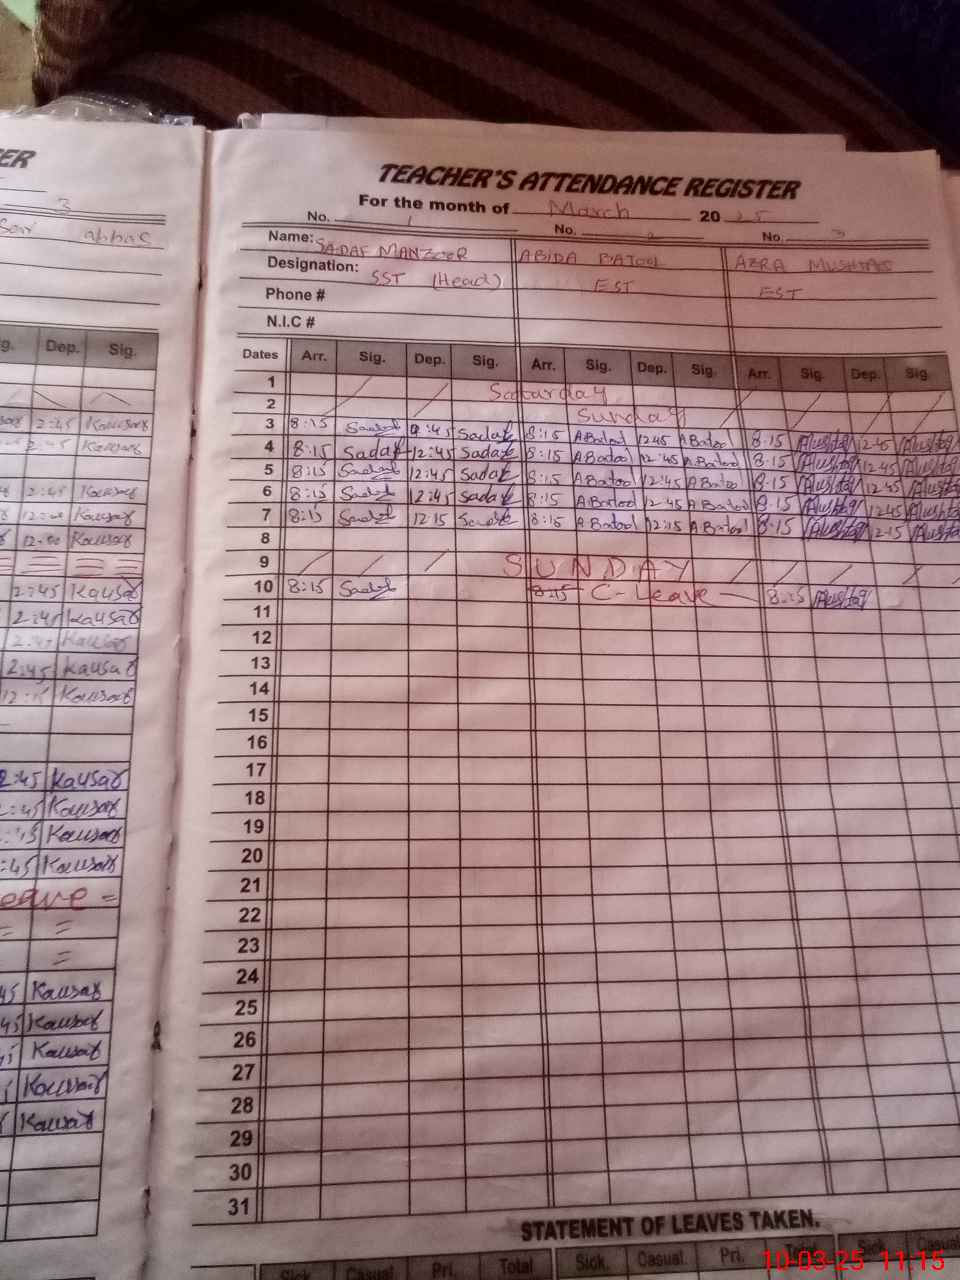 ER
3
TEACHER'S ATTENDANCE REGISTER
For the month of March 20 25
No. 1 No. 2 No. 3
Name: SADAF MANZOOR ABIDA BATOOL AZRA MUSHTAQ
Designation: SST (Head) EST EST
Phone #
N.I.C #
g. Dep. Sig.
Dates Arr. Sig. Dep. Sig. Arr. Sig. Dep. Sig. Arr. Sig. Dep. Sig.
1 Saturday
2 Sunday
3 8:15 Sadaf Sadaf 8:15 A Batool 12:45 A Batool 8:15 AMushtaq 12:45 AMushtaq
4 8:15 Sadaf 12:45 Sadaf 8:15 A Batool 12:45 A Batool 8:15 AMushtaq 12:45 AMushtaq
5 8:15 Sadaf 12:45 Sadaf 8:15 A Batool 12:45 A Batool 8:15 AMushtaq 12:45 AMushtaq
6 8:15 Sadaf 12:45 Sadaf 8:15 A Batool 12:45 A Batool 8:15 AMushtaq 12:45 AMushtaq
7 8:15 Sadaf 12:15 Sadaf 8:15 A Batool 12:15 A Batool 8:15 AMushtaq 12:15 AMushtaq
8
9 SUNDAY
10 8:15 Sadaf 8:15 C-Leave 8:15 AMushtaq
11
12
13
14
15
16
17
18
19
20
21
22
23
24
25
26
27
28
29
30
31
2:45 Kausar
Kausar
2:45 Kausar
Kausar
Kausar
2:45 Kausar
2:45 Kausar
2:45 Kausar
2:45 Kausar
Kausar
2:45 Kausar
:45 Kausar
Kausar
:45 Kausar
eave =
= =
=
45 Kausar
45 Kausar
Kausar
Kausar
Kausar
STATEMENT OF LEAVES TAKEN.
Sick. Casual. Pri. Total Sick. Casual. Pri. Total Sick. Casual.
10-03-25 11:15